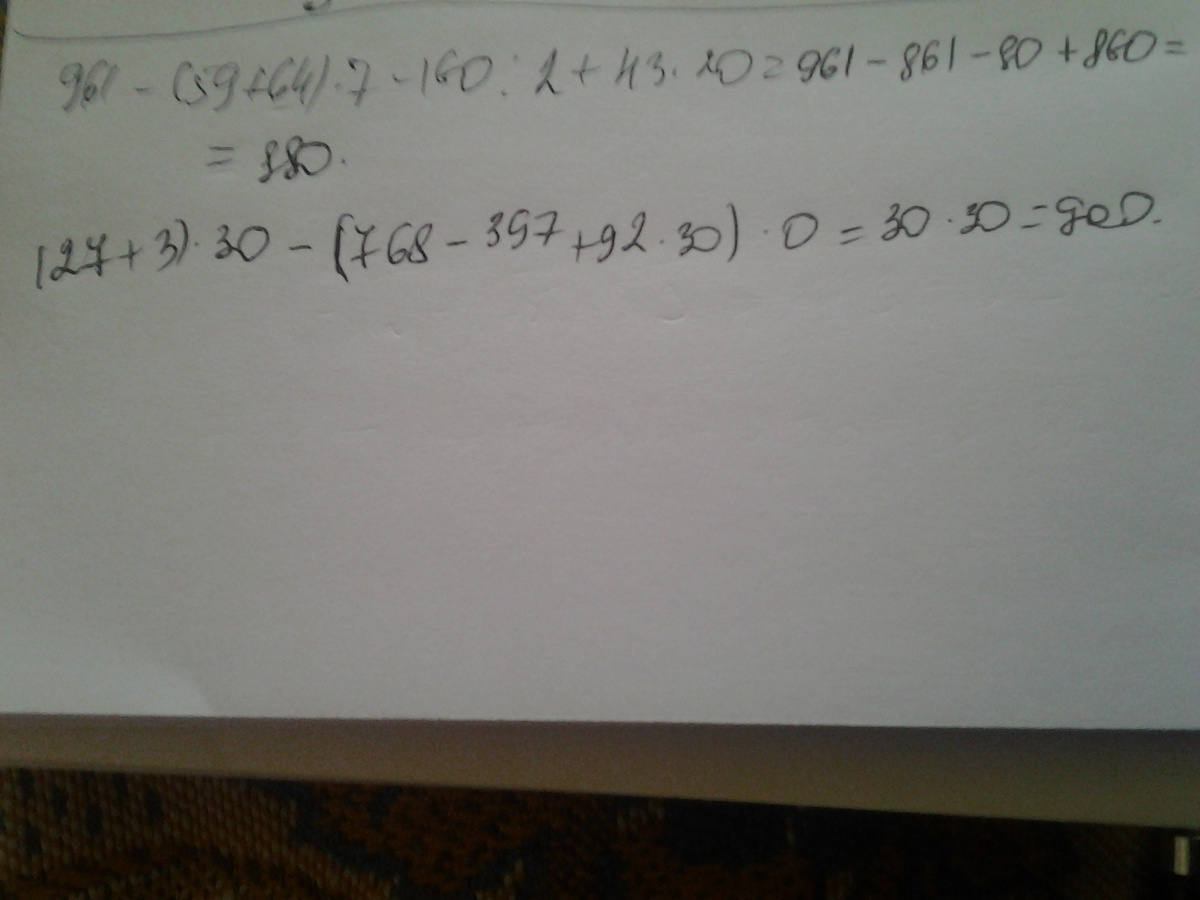 961 - (59+64)·7 - 160 : 2 + 43·20 = 961 - 861 - 80 + 860 =
= 880.
(27+3)·30 - (768 - 397 + 92·30) · 0 = 30·30 = 900.